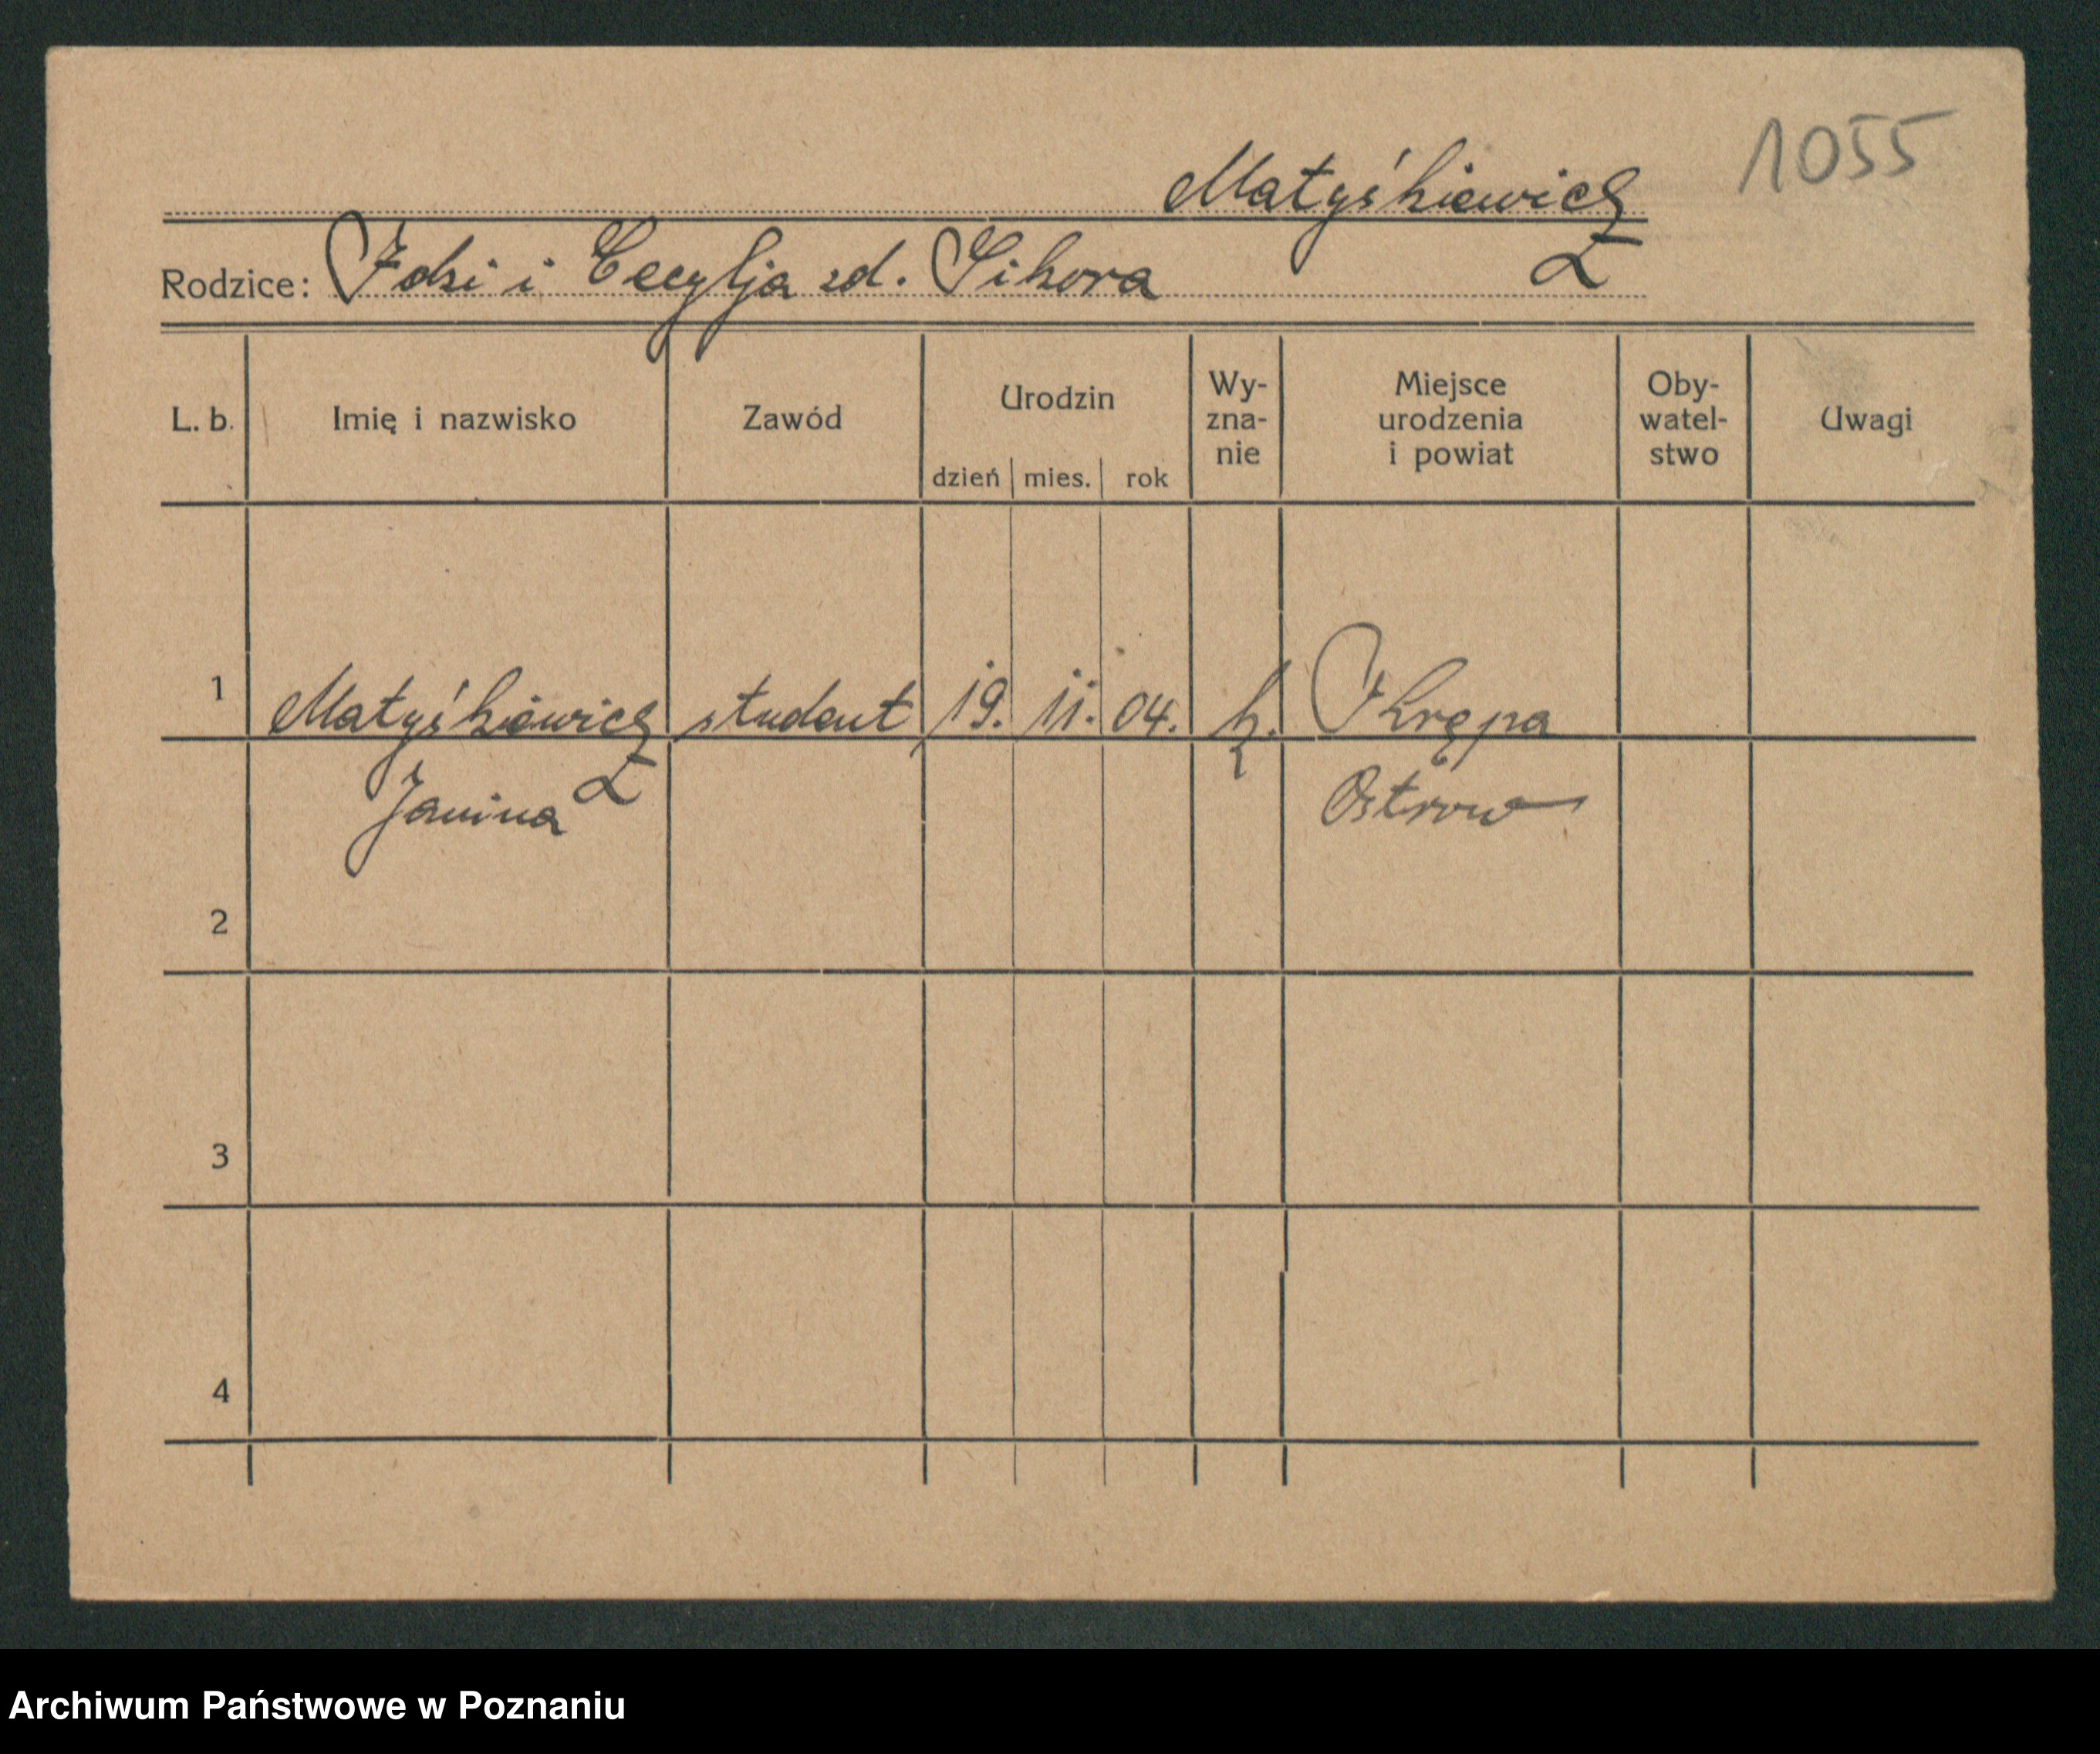 1055
Matyśkiewicz
Rodzice: Idzi i Cecylja zd. Sikora
L. b. Imię i nazwisko Zawód Urodzin Wy-zna-nie Miejsce urodzenia i powiat Oby-watel-stwo Uwagi
dzień mies. rok
1 Matyśkiewicz student 19. 11. 04. k. Krępa
Janina Ostrow
2
3
4
Archiwum Państwowe w Poznaniu